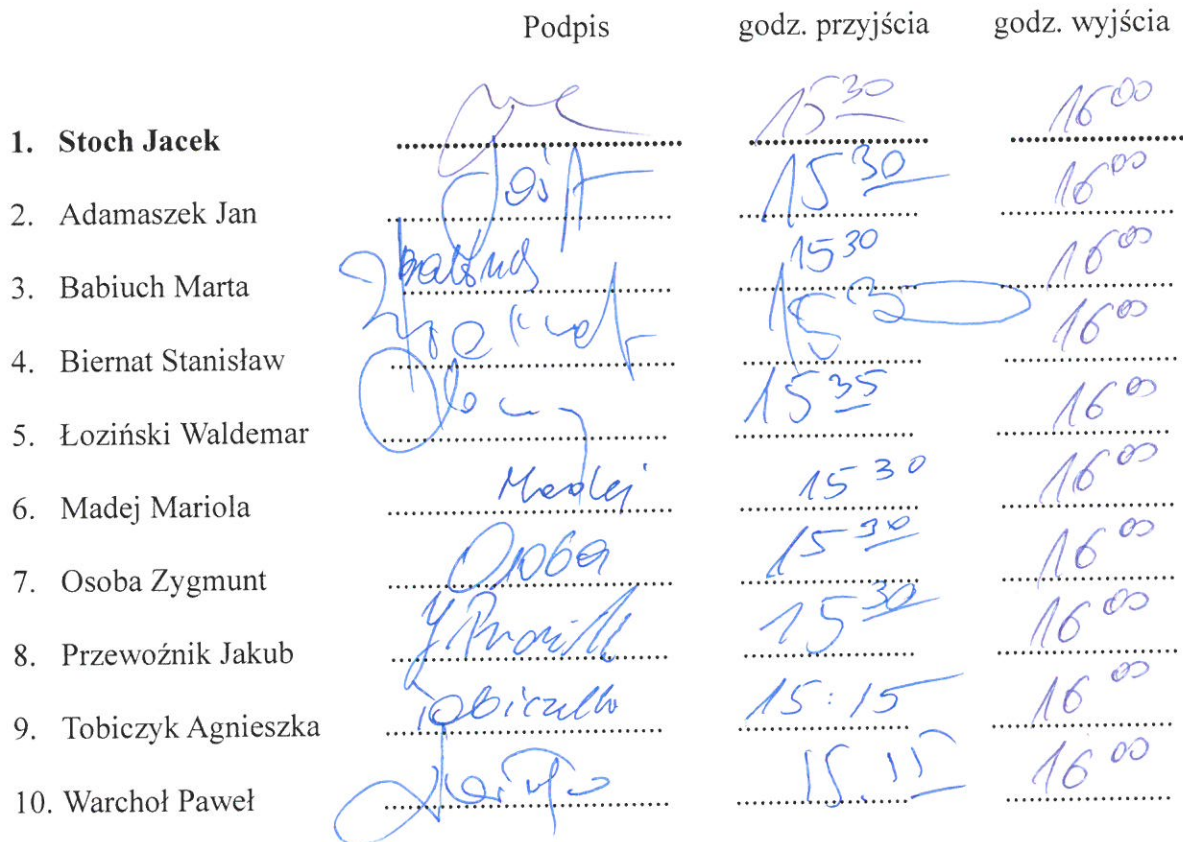 Podpis godz. przyjścia godz. wyjścia
1. Stoch Jacek 15 30 16 00
2. Adamaszek Jan 15 30 16 00
3. Babiuch Marta 15 30 16 00
4. Biernat Stanisław 15 30 16 00
5. Łoziński Waldemar 15 35 16 00
6. Madej Mariola Madej 15 30 16 00
7. Osoba Zygmunt Osoba 15 30 16 00
8. Przewoźnik Jakub 15 30 16 00
9. Tobiczyk Agnieszka 15:15 16 00
10. Warchoł Paweł 16 00